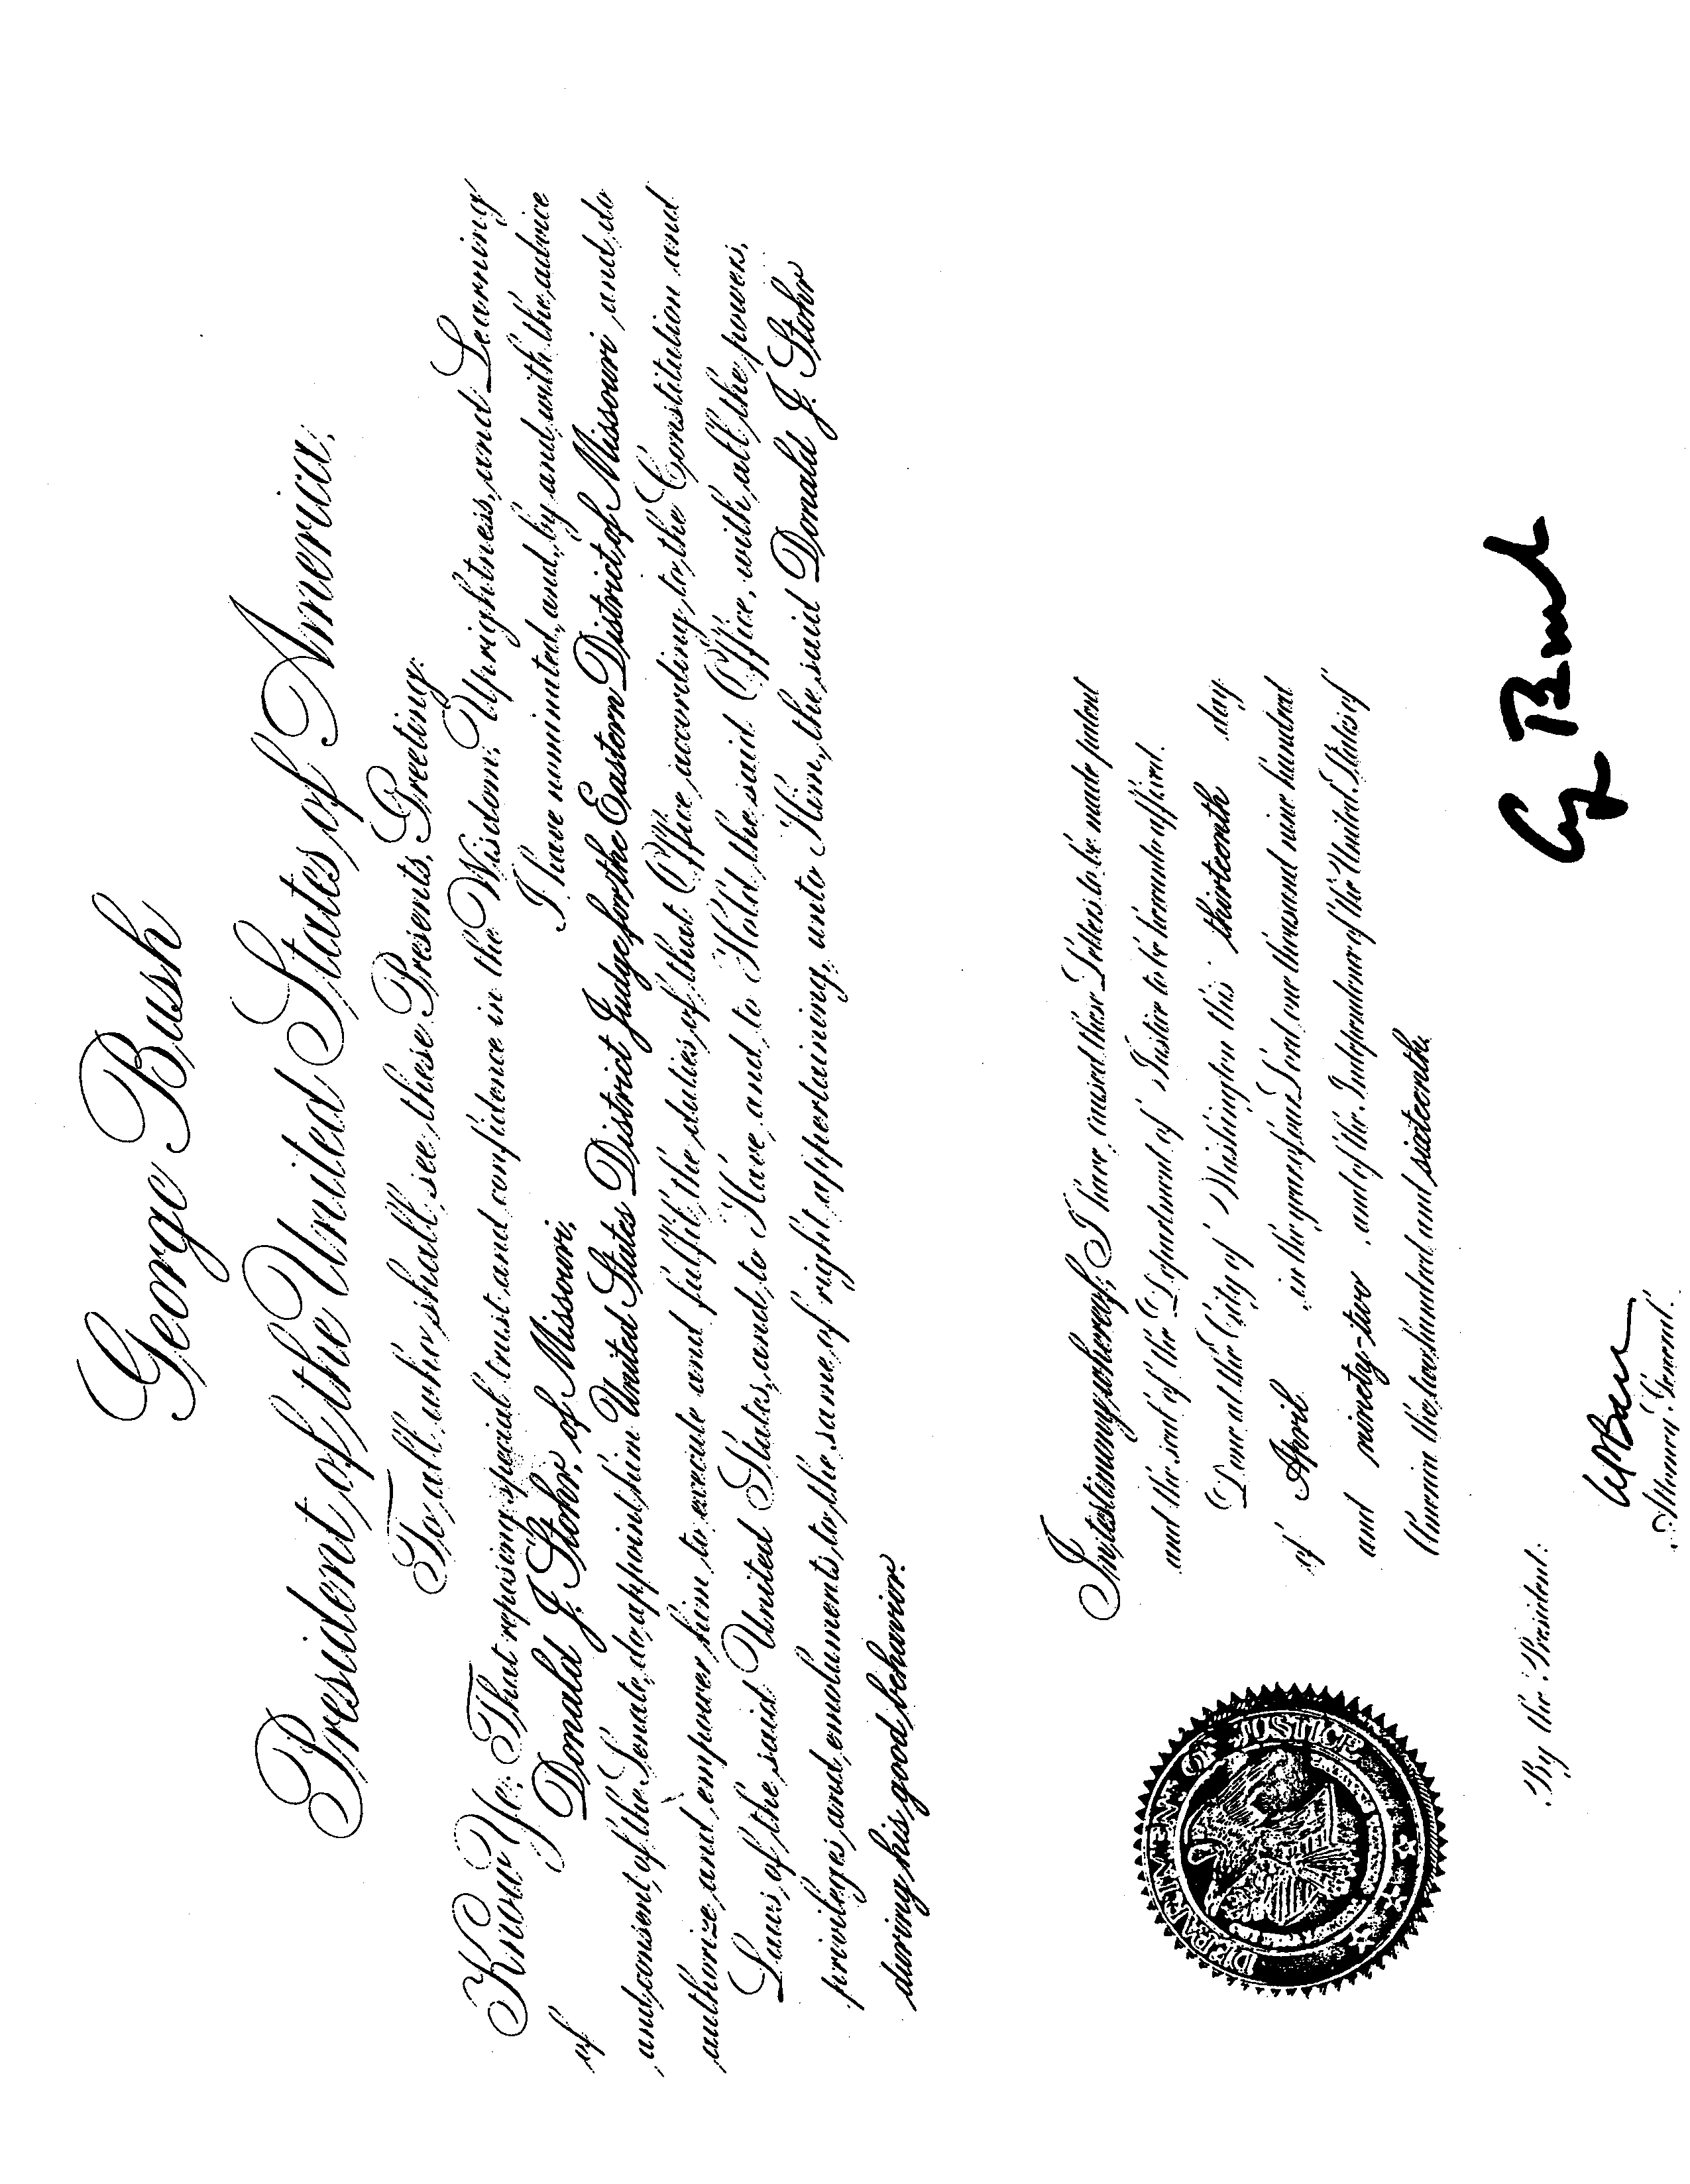 George Bush
President of the United States of America.
To all who shall see these Presents, Greeting:
Know Ye: That reposing special trust and confidence in the Wisdom, Uprightness, and Learning
of Donald J. Stohr, of Missouri, I have nominated, and, by and with the advice
and consent of the Senate, do appoint him United States District Judge for the Eastern District of Missouri and do
authorize and empower him to execute and fulfil the duties of that Office according to the Constitution and
Laws of the said United States, and to Have and to Hold the said Office, with all the powers,
privileges and emoluments to the same of right appertaining, unto Him, the said Donald J. Stohr
during his good behavior.
In testimony whereof, I have caused these Letters to be made patent
and the seal of the Department of Justice to be hereunto affixed.
Done at the City of Washington this thirteenth day
of April in the year of our Lord one thousand nine hundred
and ninety-two, and of the Independence of the United States of
America the two hundred and sixteenth.
DEPARTMENT OF JUSTICE
G Bush
By the President:
Wm Barr
Attorney General.